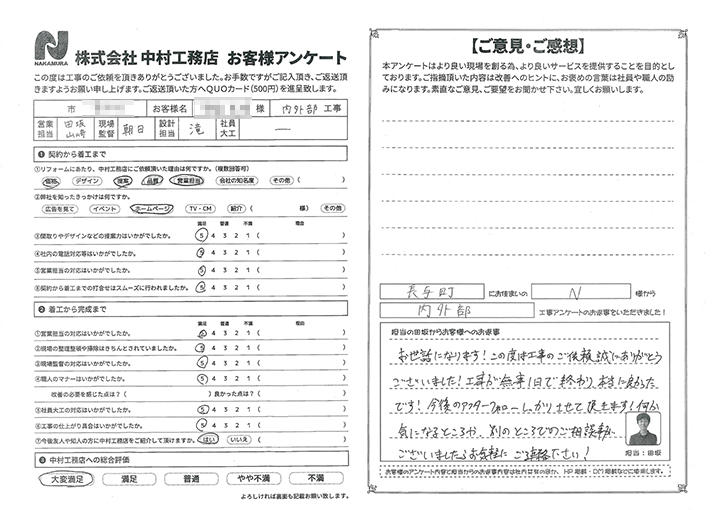 NAKAMURA
株式会社 中村工務店 お客様アンケート
この度は工事のご依頼を頂きありがとうございました。お手数ですがご記入頂き、ご返送頂
きますようお願い申し上げます。ご返送頂いた方へQUOカード(500円)を進呈致します。
市 お客様名 様 内外部 工事
営業担当 田坂 山崎 現場監督 朝日 設計担当 滝 社員大工 ―
❶ 契約から着工まで
①リフォームにあたり、中村工務店にご依頼頂いた理由は何ですか。(複数回答可)
価格 デザイン 提案 品質 営業担当 会社の知名度 その他 ( )
②弊社を知ったきっかけは何ですか。
広告を見て イベント ホームページ TV・CM 紹介 ( 様) その他
満足 普通 不満 理由
③間取りやデザインなどの提案力はいかがでしたか。 5 4 3 2 1 ( )
④社内の電話対応等はいかがでしたか。 5 4 3 2 1 ( )
⑤営業担当の対応はいかがでしたか。 5 4 3 2 1 ( )
⑥契約から着工までの打合せはスムーズに行われましたか。 5 4 3 2 1 ( )
❷ 着工から完成まで
満足 普通 不満 理由
①営業担当の対応はいかがでしたか。 5 4 3 2 1 ( )
②現場の整理整頓や掃除はきちんとされていましたか。 5 4 3 2 1 ( )
③現場監督の対応はいかがでしたか。 5 4 3 2 1 ( )
④職人のマナーはいかがでしたか。 5 4 3 2 1 ( )
改善の必要を感じた点は?( )良かった点は?( )
⑤社員大工の対応はいかがでしたか。 5 4 3 2 1 ( )
⑥工事の仕上がり具合はいかがでしたか。 5 4 3 2 1 ( )
⑦今後友人や知人の方に中村工務店をご紹介して頂けますか。 はい いいえ ( )
❸ 中村工務店への総合評価
大変満足 満足 普通 やや不満 不満
よろしければ裏面も記載お願い致します。
【ご意見・ご感想】
本アンケートはより良い現場を創る為、より良いサービスを提供することを目的とし
ております。ご指摘頂いた内容は改善へのヒントに、お褒めの言葉は社員や職人の励
みになります。素直なご意見、ご要望をお聞かせ下さい。宜しくお願いします。
長与町 にお住まいの N 様から
内外部 工事アンケートのお返事をいただきました!
担当の田坂からお客様へのお返事
お世話になります!この度は工事のご依頼、誠にありがとう
ございました!工事が無事1日で終わり、本当に良かった
です!今後のアフターフォローもしっかりさせて頂きます!何か
気になるところや、別のところでのご相談事が
ございましたらお気軽にご連絡下さい!
担当:田坂
お客様のアンケート内容と担当からのお返事内容は社内共有のほか、HP掲載・DM掲載などに使用します。